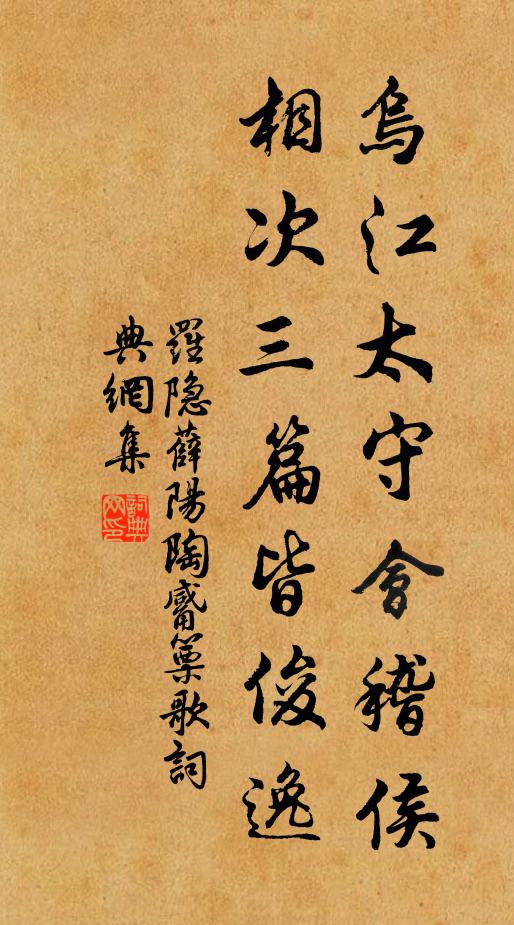 烏江太守會稽侯
相次三篇皆俊逸
羅隐薛陽陶觱篥歌詞
典網集
詞典
网印